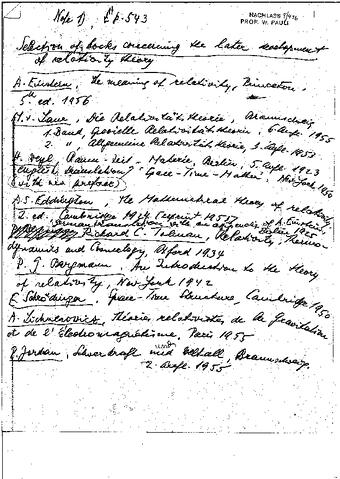 Note 1), Ep. 543
NACHLASS
PROF. W. PAULI
Selection of books concerning the later development
of relativity theory
A. Einstein, The meaning of relativity, Princeton,
5th ed. 1956
M. v. Laue, Die Relativitätstheorie, Braunschweig
1. Band, Spezielle Relativitätstheorie, 6. Aufl. 1955
2. " Allgemeine Relativitätstheorie, 3. Aufl. 1953
H. Weyl, Raum-Zeit-Materie, Berlin, 5. Aufl. 1923
English translation "Space-Time-Matter", New York 1950
(with new preface)
A.S. Eddington, The Mathematical theory of relativity
2. ed. Cambridge 1924
German translation with an appendix of A. Einstein, Berlin 1925
Richard C. Tolman, Relativity, Thermo-
dynamics and Cosmology, Oxford 1934
P. G. Bergmann, An Introduction to the theory
of relativity, New York 1942
E. Schrödinger, Space-Time Structure, Cambridge 1950
A. Lichnerowicz, Théories relativistes de la Gravitation
et de l'Électromagnétisme, Paris 1955
P. Jordan, Schwerkraft und Weltall, Braunschweig,
2. Aufl. 1955